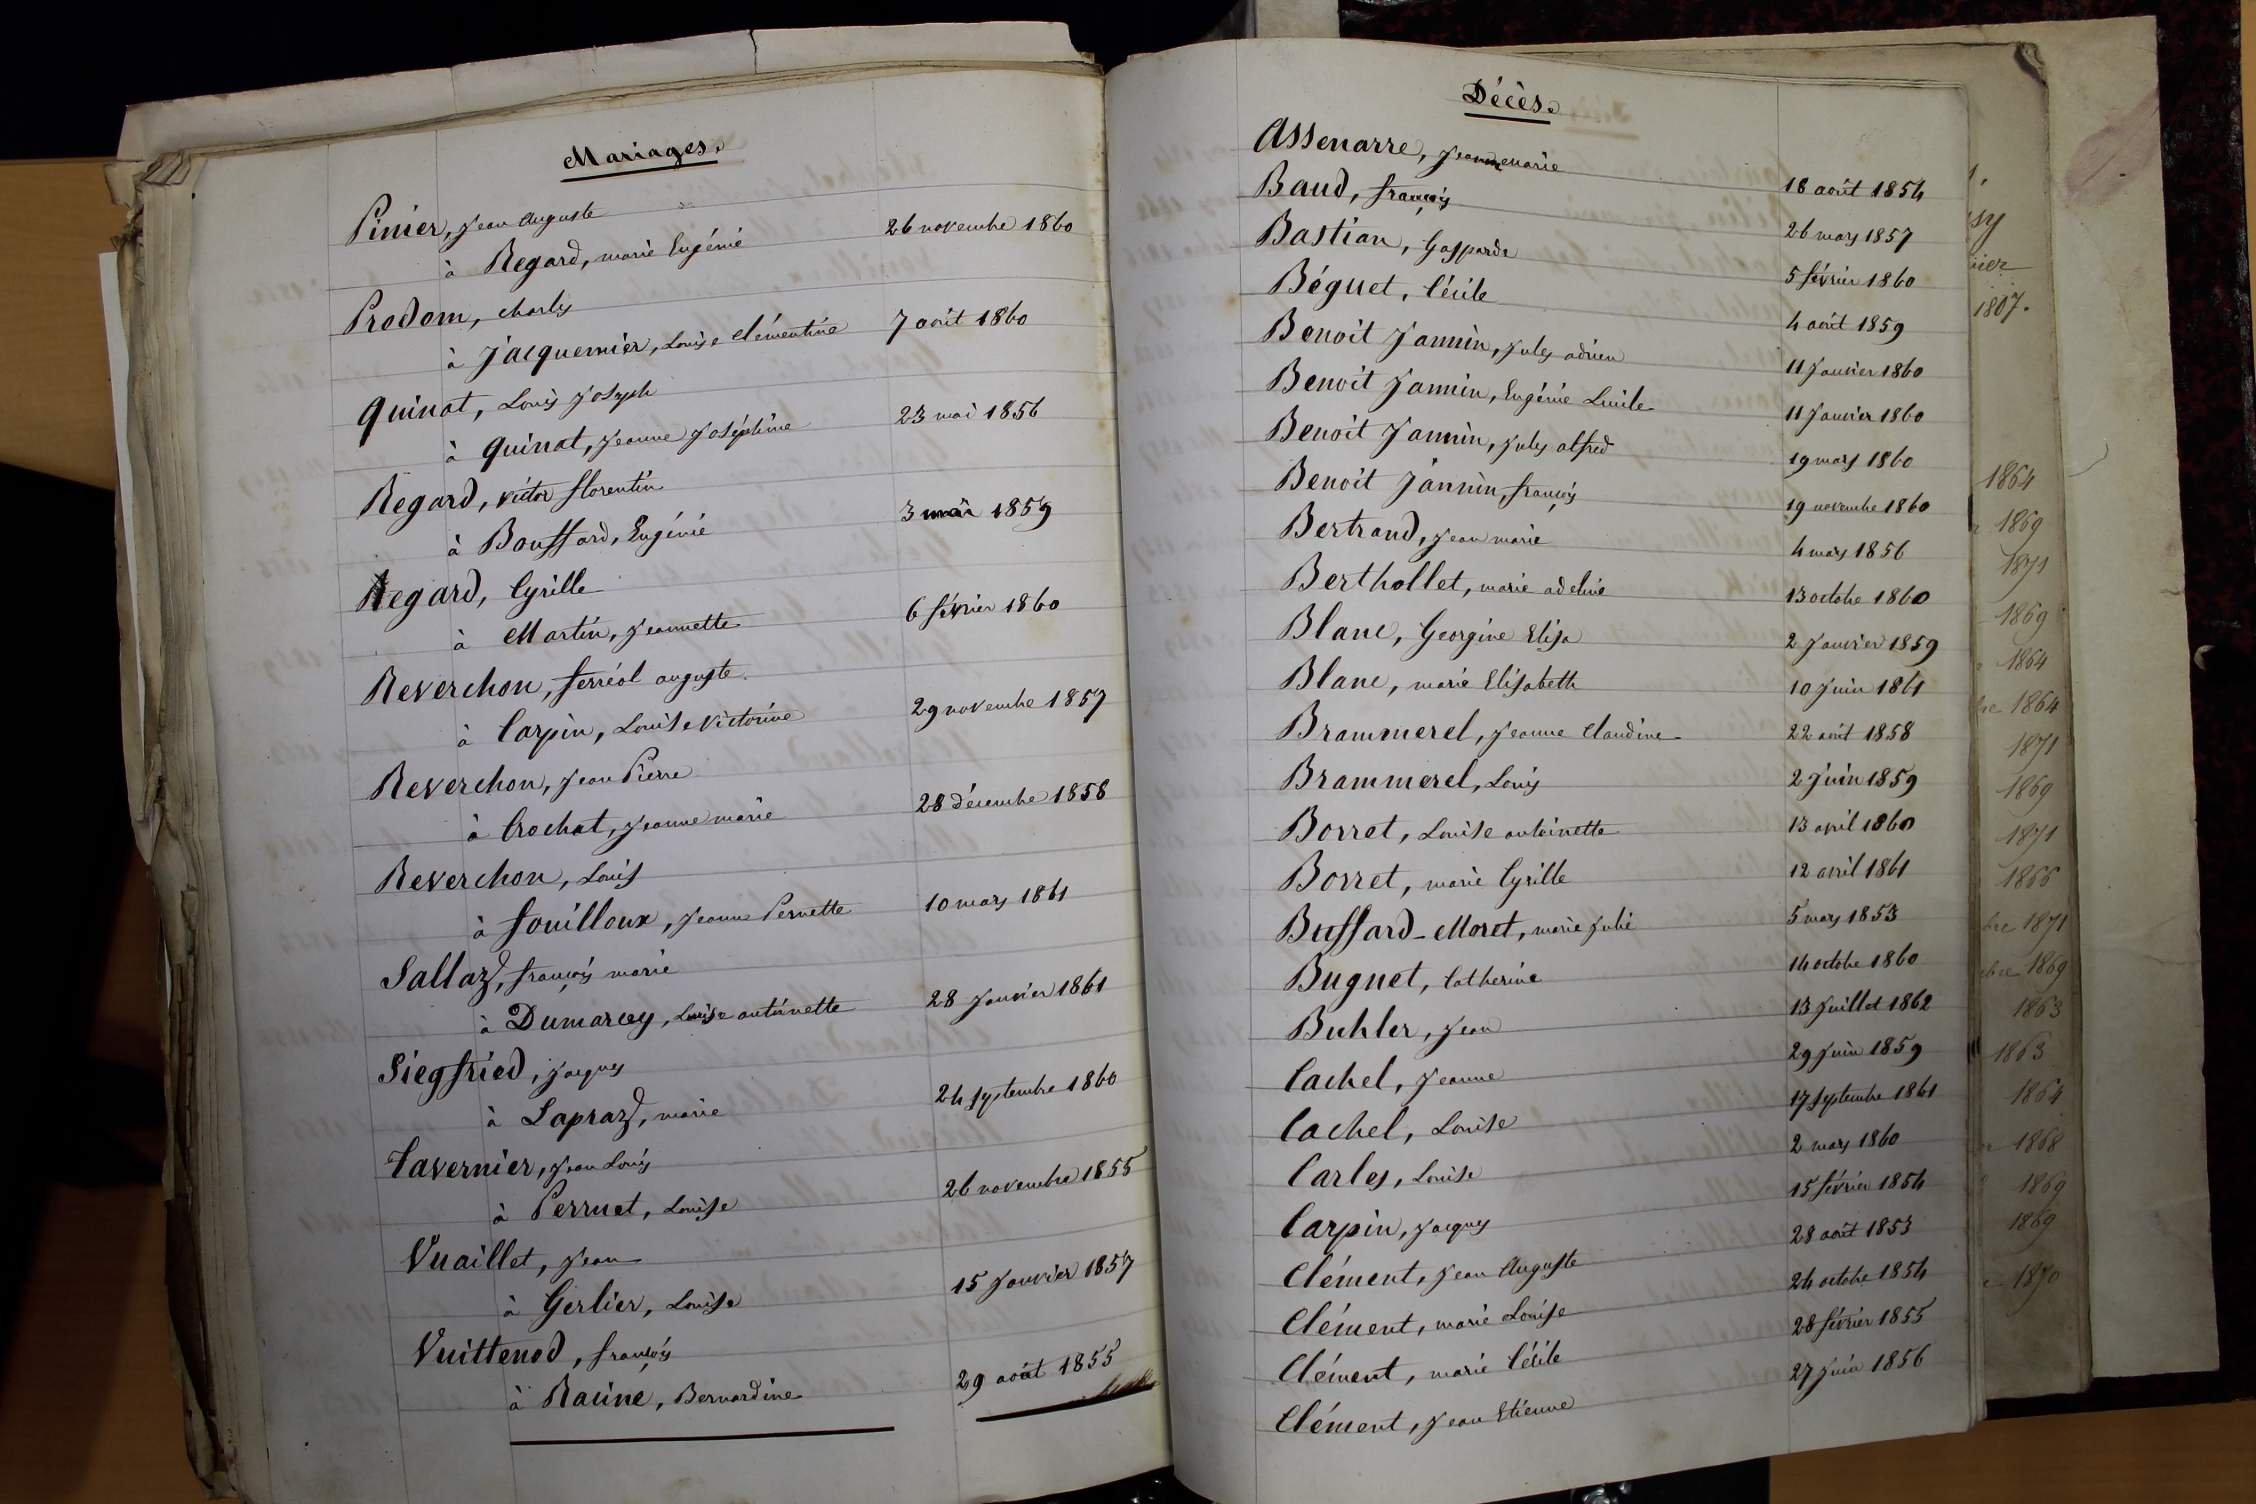 Mariages.
Pinier, Jean Auguste
à Regard, marie Eugénie 26 novembre 1860
Prodom, charles
à Jacquemier, Louise clémentine 7 août 1860
Quinat, Louis Joseph
à Quinat, Jeanne Joséphine 23 mai 1856
Regard, victor florentin
à Bouffard, Eugénie 3 mai 1859
Regard, Cyrille
à Martin, Jeannette 6 février 1860
Reverchon, ferréol auguste
à Carpin, Louise victorine 29 novembre 1857
Reverchon, Jean Pierre
à Crochat, Jeanne marie 28 décembre 1858
Reverchon, Louis
à fouilloux, Jeanne Pernette 10 mars 1861
Sallaz, françois marie
à Dumarcey, Louise antoinette 28 Janvier 1861
Siegfried, Jacques
à Lapraz, marie 24 septembre 1860
Tavernier, Jean Louis
à Perruet, Louise 26 novembre 1855
Vuaillet, Jean
à Gerlier, Louise 15 Janvier 1857
Vuittenod, françois
à Racine, Bernardine 29 août 1855
Décès.
Assenarre, Jeanne marie 18 août 1854
Baud, françois 26 mars 1857
Bastian, Gasparde 5 février 1860
Béguet, Cécile 4 août 1859
Benoit Jannin, Jules adrien 11 Janvier 1860
Benoit Jannin, Eugénie Lucile 11 Janvier 1860
Benoit Jannin, Jules alfred 19 mars 1860
Benoit Jannin, françois 19 novembre 1860
Bertrand, Jean marie 4 mars 1856
Berthollet, marie adeline 13 octobre 1860
Blanc, Georgine Elisa 2 Janvier 1859
Blanc, marie Elisabeth 10 Juin 1861
Brammerel, Jeanne claudine 22 août 1858
Brammerel, Louis 2 Juin 1859
Borret, Louise antoinette 13 avril 1860
Borret, marie Cyrille 12 avril 1861
Buffard-Moret, marie Julie 5 mars 1853
Bugnet, Catherine 14 octobre 1860
Buhler, Jean 13 Juillet 1862
Cachel, Jeanne 29 Juin 1859
Cachel, Louise 17 septembre 1861
Carles, Louise 2 mars 1860
Carpin, Jacques 15 février 1854
Clément, Jean Auguste 28 août 1853
Clément, marie Louise 24 octobre 1854
Clément, marie Cécile 28 février 1855
Clément, Jean Etienne 27 Juin 1856
1807.
1864
1869
1871
1869
1864
1864
1871
1869
1871
1866
1871
1869
1863
1863
1864
1868
1869
1869
1870